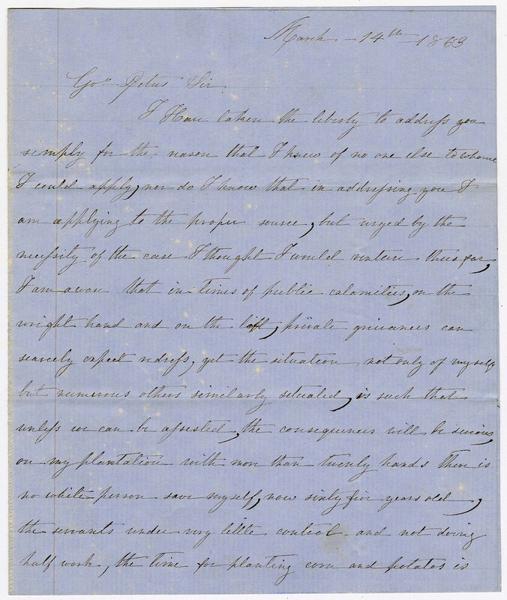 March - 14th - 1863
Gov Petus Sir.
I Have taken the liberty to address you
simply for the reason that I know of no one else to whome
I could apply, nor do I know that in addressing you I
am applying to the proper source, but urged by the
necessity of the case I thought I would venture thus far,
I am awar that in times of public calamities, on the
wright hand and on the left, private grievances can
scarcely expect redress, yet the situation not only of myself
but numerous others similarly situated, is such that
unless we can be assisted, the consequences will be serious,
on my plantation with mor than twenty hands there is
no white person save myself, now sixty five years old,
the servants under very little control and not doing
half work, the time for planting corn and potatos is